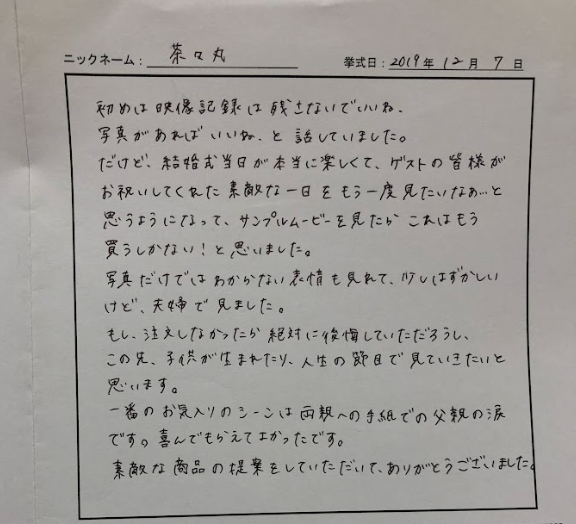 ニックネーム： 茶々丸 挙式日：2019年 12月 7日
初めは映像記録は残さないでいいね、
写真があればいいね、と話していました。
だけど、結婚式当日が本当に楽しくて、ゲストの皆様が
お祝いしてくれた素敵な一日をもう一度見たいなぁ…と
思うようになって、サンプルムービーを見たら これはもう
買うしかない！と思いました。
写真だけではわからない表情も見れて、少しはずかしい
けど、夫婦で見ました。
もし、注文しなかったら絶対に後悔していただろうし、
この先、子供が生まれたり、人生の節目で見ていきたいと
思います。
一番のお気入りのシーンは両親への手紙での父親の涙
です。喜んでもらえてよかったです。
素敵な商品の提案をしていただいて、ありがとうございました。